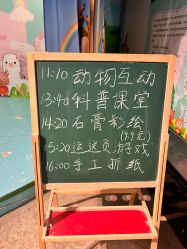 11:10 动物互动
13:40 科普课堂
14:20 石膏彩绘
(9.9元)
15:20 运送员游戏
16:00 手工折纸